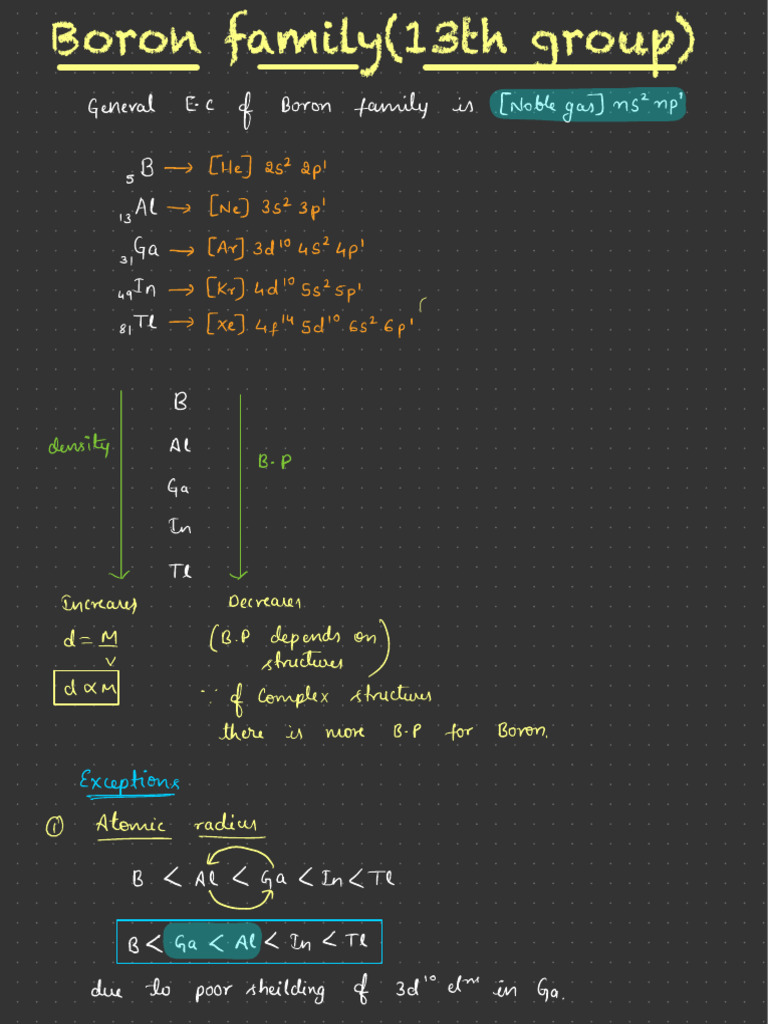 Boron family(13th group)
General E.C of Boron family is [Noble gas] ns² np¹
₅B → [He] 2s² 2p¹
₁₃Al → [Ne] 3s² 3p¹
₃₁Ga → [Ar] 3d¹⁰ 4s² 4p¹
₄₉In → [Kr] 4d¹⁰ 5s² 5p¹
₈₁Tl → [Xe] 4f¹⁴ 5d¹⁰ 6s² 6p¹
B
density Al
B.P
Ga
In
Tl
Increases Decreases
d = M/V (B.P depends on structures)
d ∝ M ∵ of complex structures
there is more B.P for Boron.
Exceptions
① Atomic radius
B < Al < Ga < In < Tl
B < Ga < Al < In < Tl
due to poor sheilding of 3d¹⁰ eˡⁿˢ in Ga.